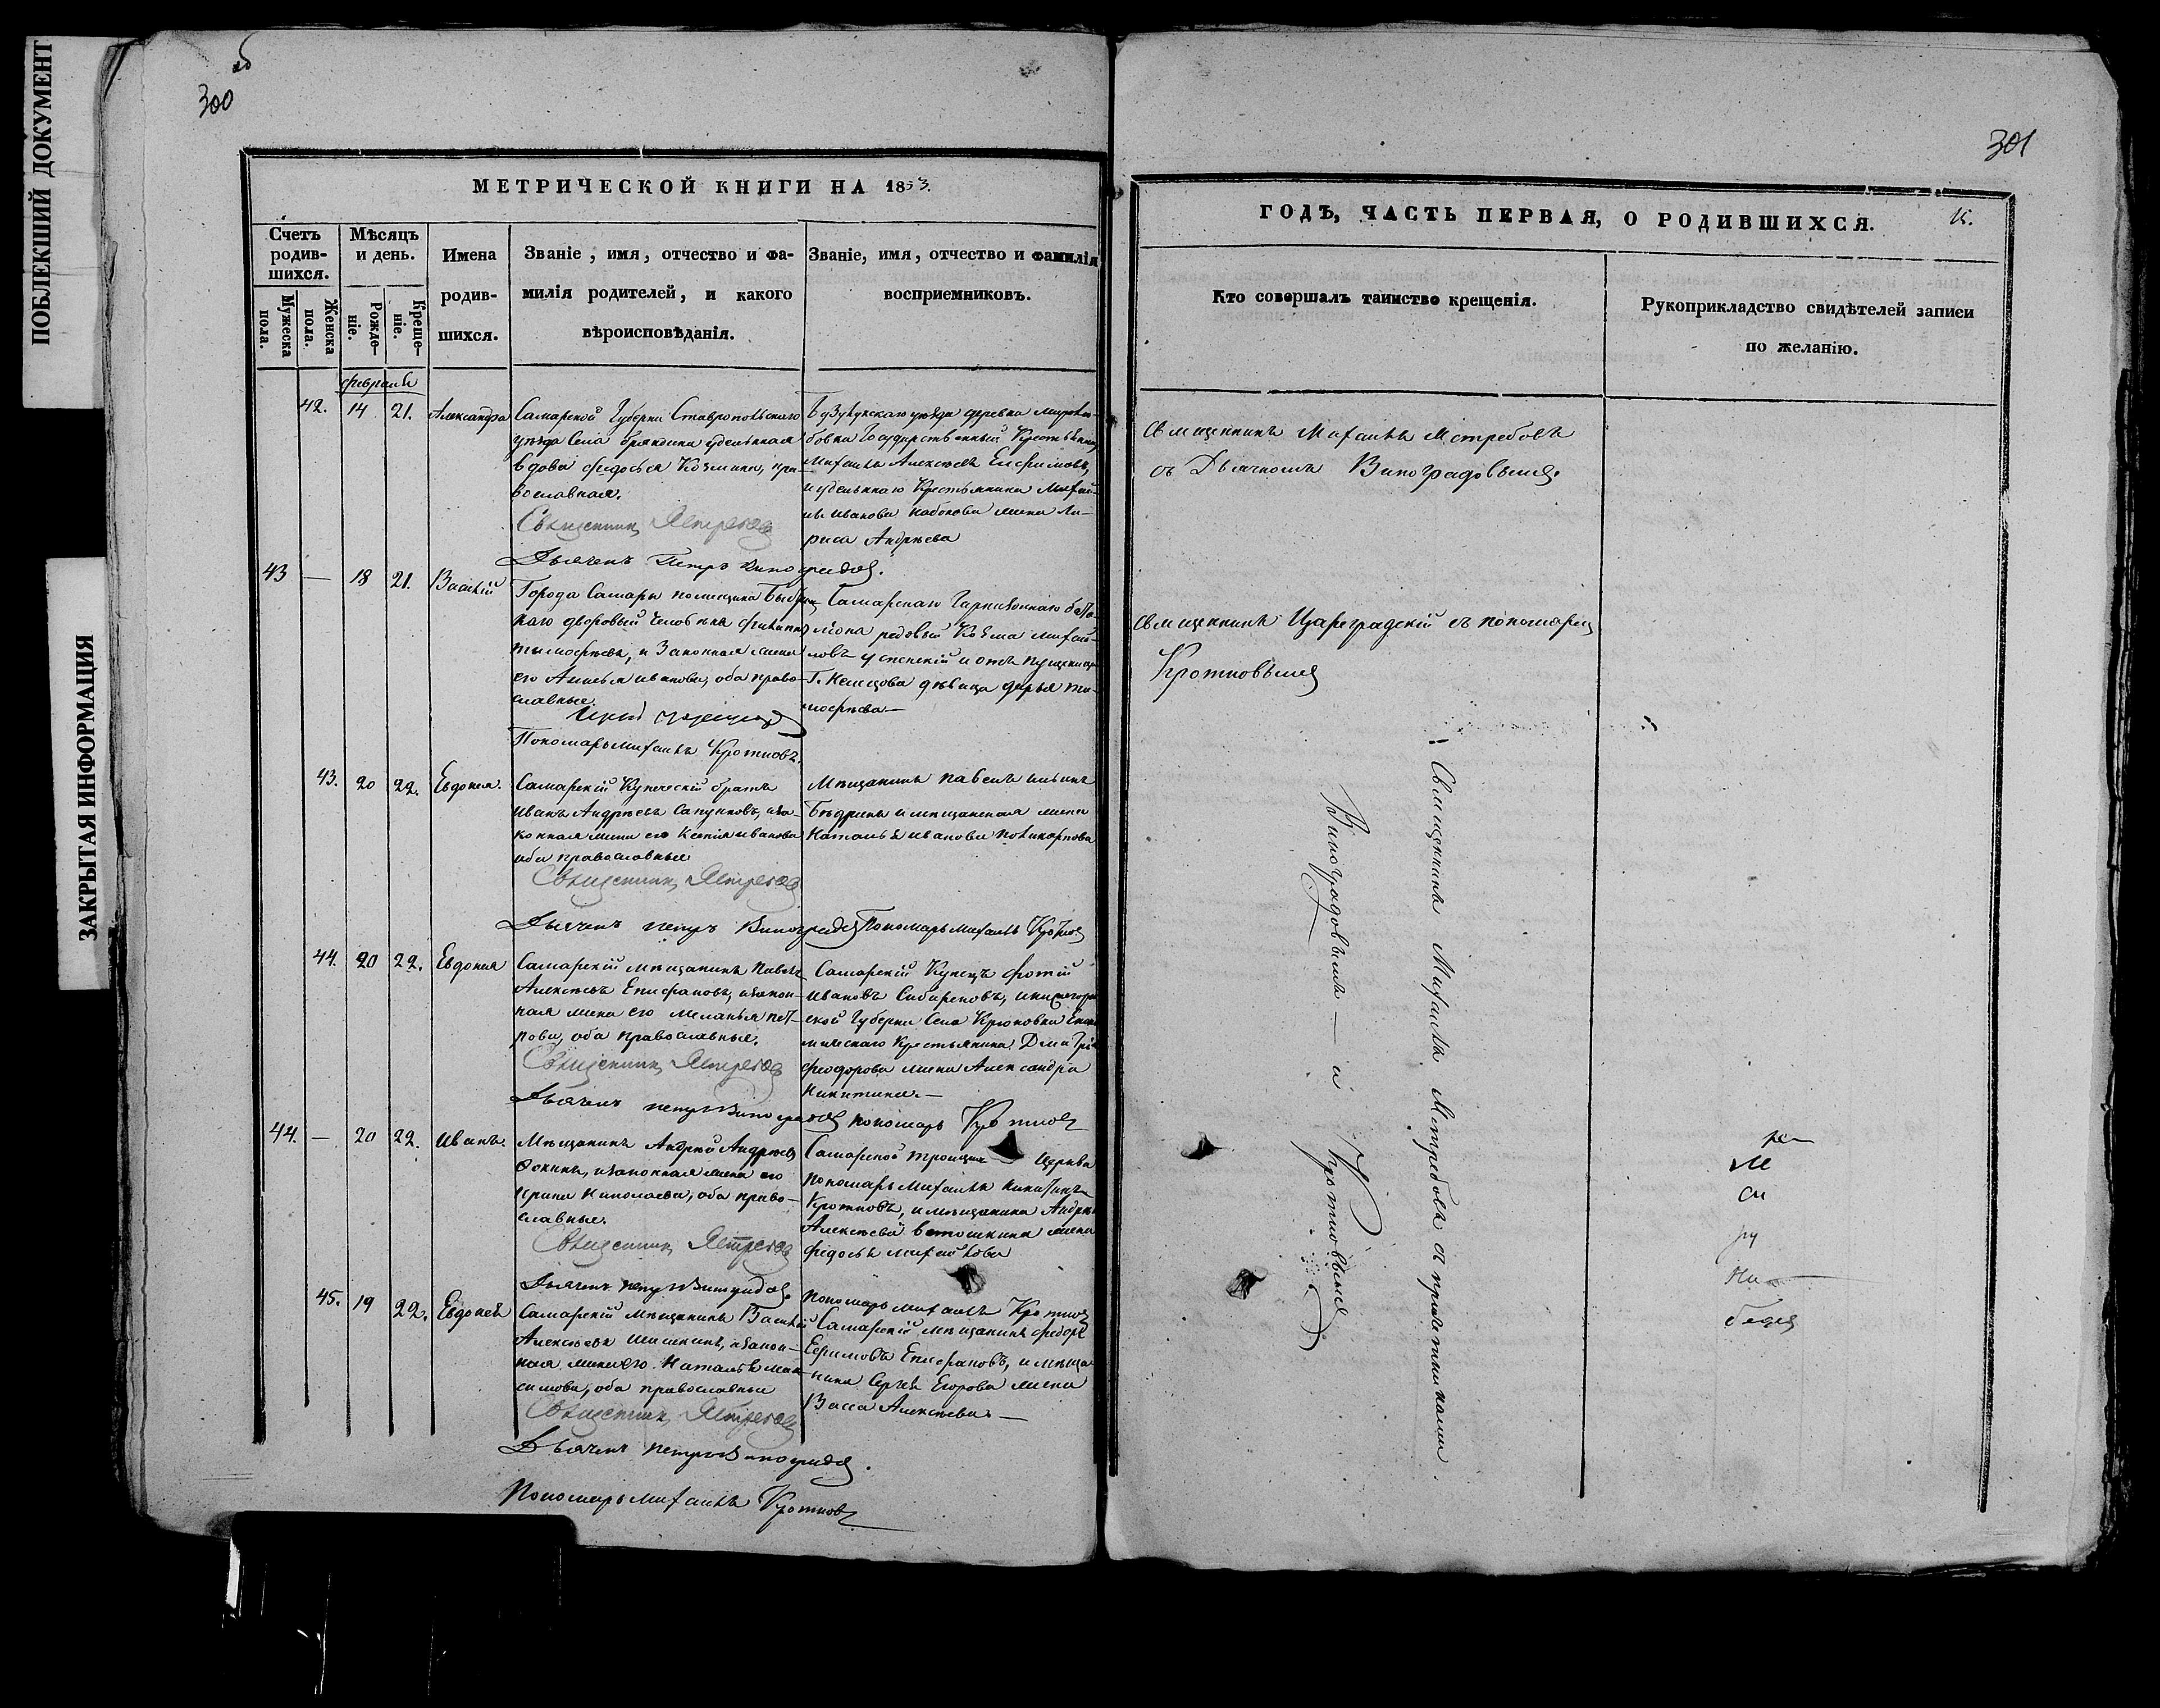 ПОБЛЕКШИЙ ДОКУМЕНТ
ЗАКРЫТАЯ ИНФОРМАЦИЯ
300
МЕТРИЧЕСКОЙ КНИГИ НА 1853.
Счетъ родив-шихся.
Мужеска пола.
Женска пола.
Мѣсяцъ и день.
Рожде-ніе.
Креще-ніе.
Имена
родив-
шихся.
Званіе, имя, отчество и фа-
милія родителей, и какого
вѣроисповѣданія.
Званіе, имя, отчество и фамилія
восприемниковъ.
февраль
42. 14 21. Александра
Самарской Губерніи Ставропольскаго
уѣзда Села удельная
вдова Федосья Козмина, пра-
вославная.
Священникъ Ястребовъ
Дьячекъ Петръ Виноградов.
Бузулукскаго уѣзда деревни
Государственный Крестьянинъ
Михаилъ Алексѣевъ Ефимовъ,
и удельнаго Крестьянина Михаи-
ла Иванова жена Ла-
риса Андреева
43 — 18 21. Василій
Города Самары помещика
каго дворовый Человѣкъ Филиппъ
Тимофеевъ, и Законная жена
его Анисья Иванова, оба право-
славные.
Пономарь Михаилъ Кротковъ.
Самарскаго Гарнизоннаго бата-
ліона рядовый Козма Михай-
ловъ Успенскій и отпущенница
Г. Немцова дѣвица Дарья Ти-
мофеева —
43. 20 22. Евдокія.
Самарскій Купеческій братъ
Иванъ Андреевъ Сапунковъ, и за-
конная жена его Ксенія Иванова
оба православные
Священникъ Ястребовъ
Дьячекъ Петръ Виноградов Пономарь Михаилъ Кротков
Мѣщанинъ Павелъ Ильинъ
Бѣдринъ и мѣщанская жена
Наталья Иванова Поликарпова
44. 20 22. Евдокия
Самарскій мѣщанинъ Павелъ
Алексѣевъ Епифановъ, и закон-
ная жена его Меланья Пет-
рова, оба православные.
Священникъ Ястребовъ
Дьячекъ Петръ Виноградов Пономарь Кротков
Самарскій Купецъ Фотій
Ивановъ Сибиряковъ, и Нижегород-
ской Губерніи Села Крюковки Эконо-
мическаго Крестьянина Дмитрія
Феодорова жена Александра
Никитина. —
44. — 20 22. Иванъ.
Мѣщанинъ Андрей Андреевъ
Фокинъ, и законная жена его
Ирина Николаева, оба право-
славные.
Священникъ Ястребовъ
Дьячекъ Петръ Виноградов.
Самарской Троицкой Церкви
Пономарь Михаилъ Никитинъ
Кротковъ, и мѣщанина Андрея
Алексѣева Ветошкина жена
Федосья Михайлова
Пономарь Михаилъ Кротков
45. 19 22. Евдокія
Самарскій Мѣщанинъ Василій
Алексѣевъ Шишкинъ, и закон-
ная жена его Наталья Мак-
симова, оба православные
Священникъ Ястребовъ
Дьячекъ Петръ Виноградов.
Пономарь Михаилъ Кротковъ
Самарскій мѣщанинъ Федоръ
Ефимовъ Епифановъ, и мѣща-
нина Сергея Егорова жена
Васса Алексѣева —
301
ГОДЪ, ЧАСТЬ ПЕРВАЯ, О РОДИВШИХСЯ.
Кто совершалъ таинство крещенія.
Рукоприкладство свидѣтелей записи
по желанію.
Священникъ Михаилъ Ястребовъ
съ Дьячкомъ Виноградовымъ.
Священникъ Цареградскій съ пономаремъ
Кротковымъ
Священникъ Михаилъ Ястребовъ съ причетниками
Виноградовымъ — и Кротковымъ